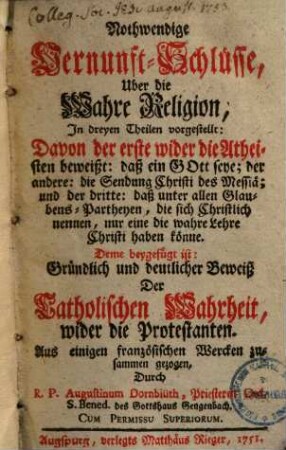 Colleg. Soc. Jesu August. 1753
Nothwendige
Vernunft-Schlüsse,
Uber die
Wahre Religion,
In dreyen Theilen vorgestellt:
Davon der erste wider die Athei-
sten beweißt: daß ein GOtt seye; der
andere: die Sendung Christi des Messiä;
und der dritte: daß unter allen Glau-
bens-Partheyen, die sich Christlich
nennen, nur eine die wahre Lehre
Christi haben könne.
Deme beygefügt ist:
Gründlich und deutlicher Beweiß
Der
Catholischen Wahrheit,
wider die Protestanten.
Aus einigen französischen Wercken zu-
sammen gezogen,
Durch
R. P. Augustinum Dornblüth, Priestern Ord.
S. Bened. des Gottshaus Gengenbach.
CUM PERMISSU SUPERIORUM.
Augspurg, verlegts Matthäus Rieger, 1751.